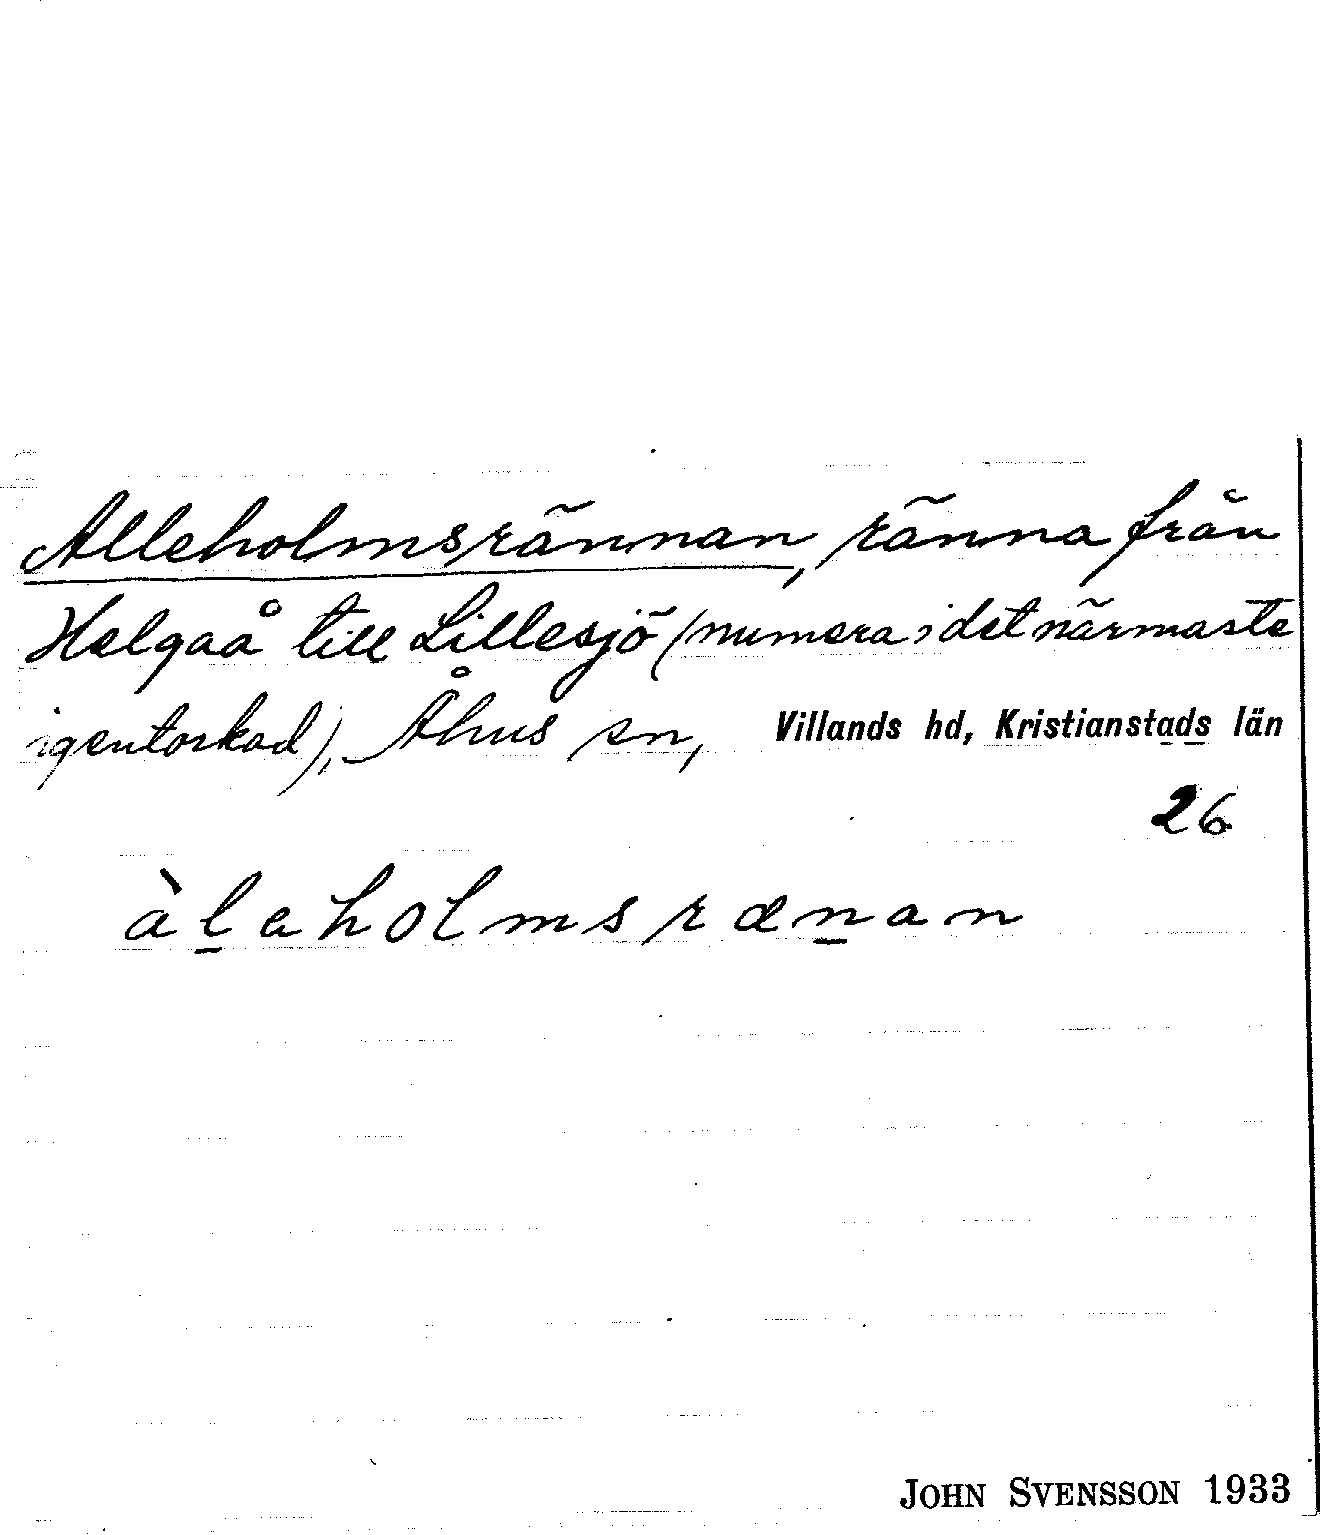 Alleholmsrännan, ränna från
Helgaå till Lillesjö (numera i det närmaste
igentorkad), Åhus sn, Villands hd, Kristianstads län
26
àl̲eholmsræn̲an
JOHN SVENSSON 1933